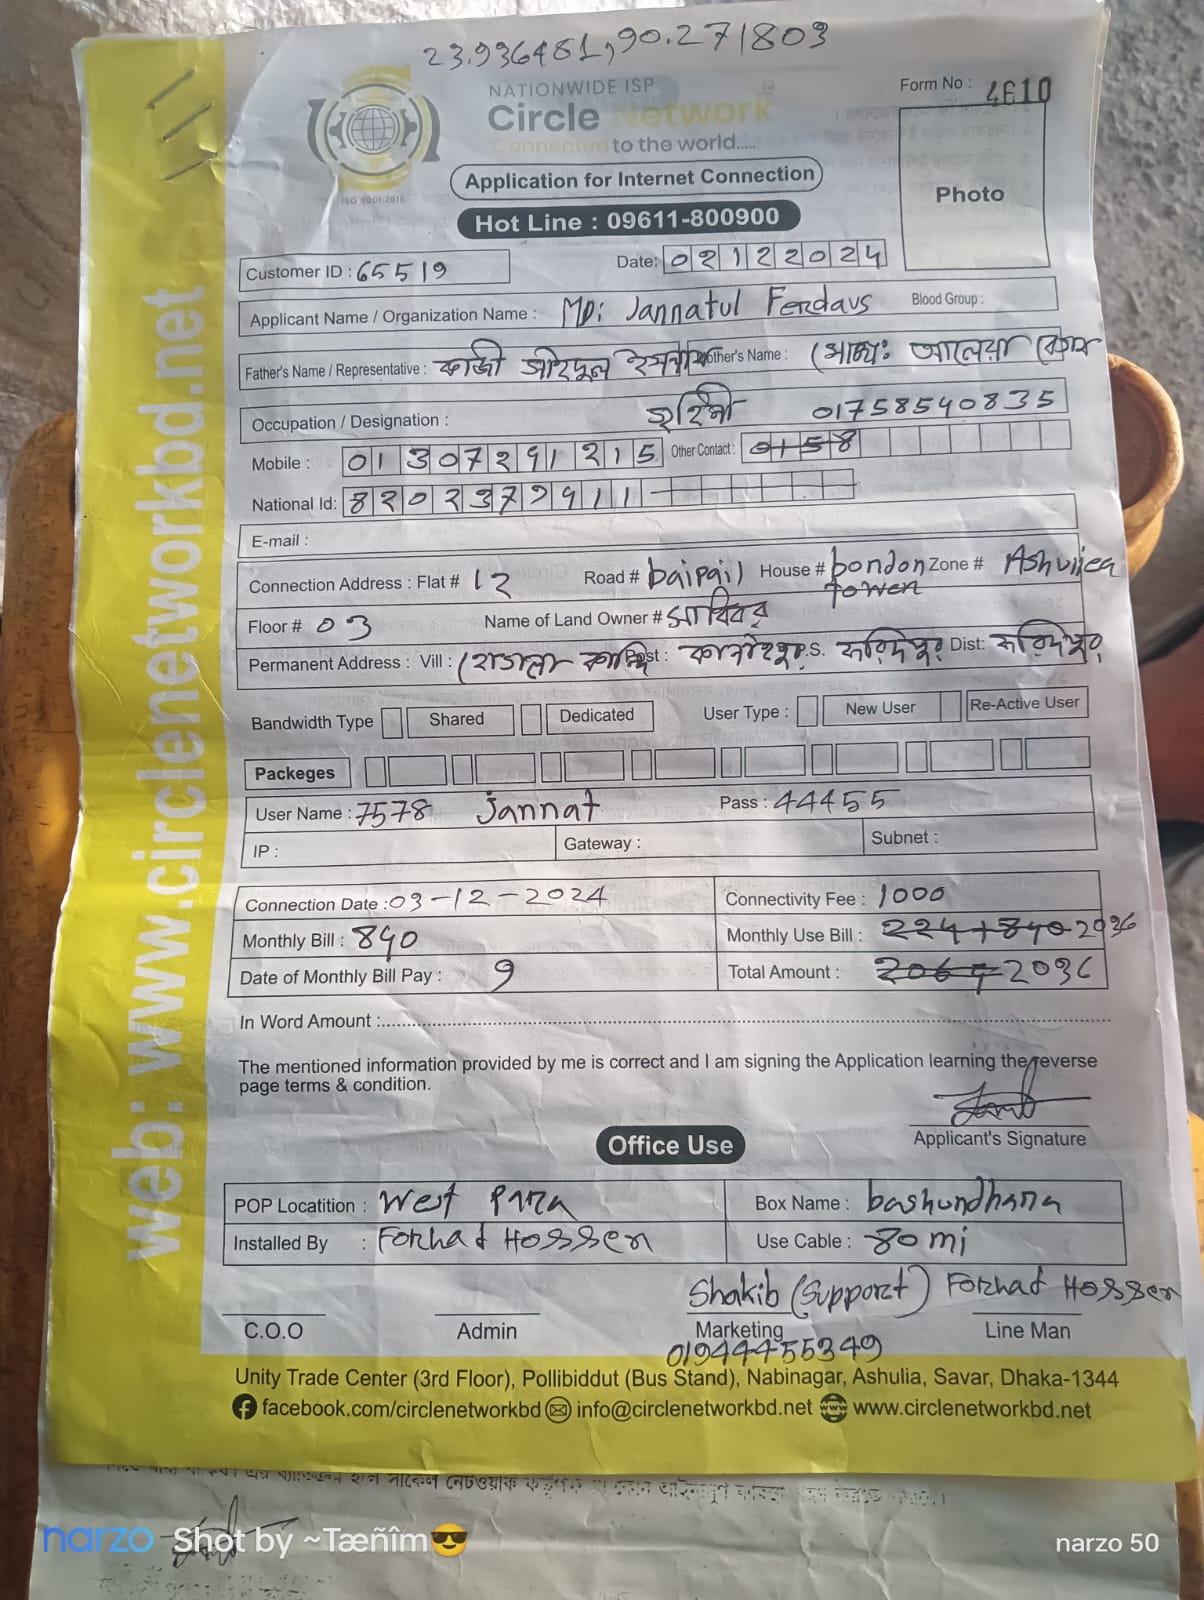 23.936481,90.271803
NATIONWIDE ISP
Circle Network
Connected to the world.....
ISO 9001:2015
Form No : 4610
Photo
Application for Internet Connection
Hot Line : 09611-800900
Customer ID : 65519
Date: 02122024
Applicant Name / Organization Name : MD: Jannatul Ferdaus Blood Group :
Father's Name / Representative : কাজী Mother's Name : মোছাঃ আলেয়া বেগম
Occupation / Designation : গৃহিনী 01758540835
Mobile : 01307291215 Other Contact : 0158
National Id: 8202379911
E-mail :
Connection Address : Flat # 12 Road # baipail House # bondon tower Zone # Ashuliea
Floor # 03 Name of Land Owner # সাব্বির
Permanent Address : Vill : Post : কানাইপুর P.S. ফরিদপুর Dist: ফরিদপুর
Bandwidth Type Shared Dedicated User Type : New User Re-Active User
Packeges
User Name : 7578 Jannat Pass : 44455
IP : Gateway : Subnet :
Connection Date : 03-12-2024 Connectivity Fee : 1000
Monthly Bill : 840 Monthly Use Bill : 224+840 2036
Date of Monthly Bill Pay : 9 Total Amount : 2064 2036
In Word Amount :
The mentioned information provided by me is correct and I am signing the Application learning the reverse
page terms & condition.
Applicant's Signature
Office Use
POP Locatition : West Para Box Name : bashundhara
Installed By : Forhad Hossen Use Cable : 80 mi
Shakib (Support) Forhad Hossen
C.O.O Admin Marketing Line Man
01944455349
Unity Trade Center (3rd Floor), Pollibiddut (Bus Stand), Nabinagar, Ashulia, Savar, Dhaka-1344
facebook.com/circlenetworkbd info@circlenetworkbd.net www.circlenetworkbd.net
web: www.circlenetworkbd.net
narzo Shot by ~Tæñîm😎 narzo 50